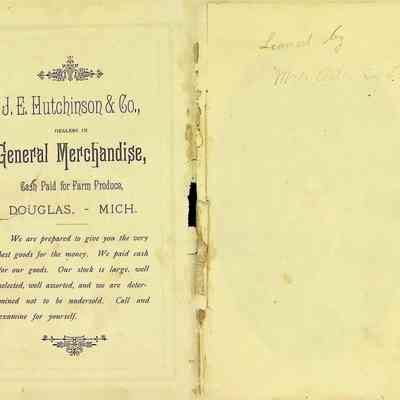 J. E. Hutchinson & Co.,
DEALERS IN
General Merchandise,
Cash Paid for Farm Produce,
DOUGLAS, - MICH.
We are prepared to give you the very
best goods for the money. We paid cash
for our goods. Our stock is large, well
selected, well assorted, and we are deter-
mined not to be undersold. Call and
examine for yourself.
Leaned by